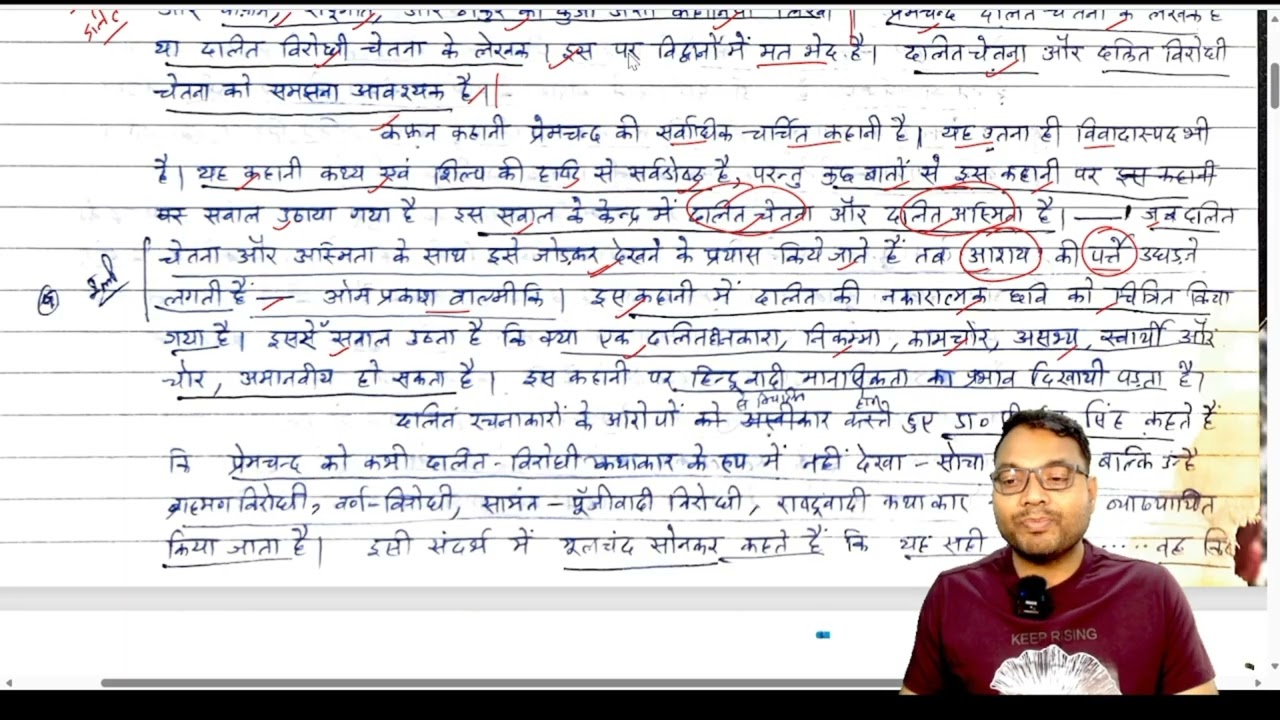 और ठाकुर का कुआँ जैसी कहानियाँ लिखी प्रेमचन्द दलित चेतना के लेखक है
था दलित विरोधी चेतना के लेखक। इस पर विद्वानों में मत भेद है। दलित चेतना और दलित विरोधी
चेतना को समझना आवश्यक है।
कफन कहानी प्रेमचन्द की सर्वाधिक चर्चित कहानी है। यह उतना ही विवादास्पद भी
है। यह कहानी कथ्य एवं शिल्प की दृष्टि से सर्वश्रेष्ठ है, परन्तु कुछ बातों से इस कहानी पर इस कहानी
पर सवाल उठाया गया है। इस सवाल के केन्द्र में दलित चेतना और दलित अस्मिता है। — जब दलित
चेतना और अस्मिता के साथ इसे जोड़कर देखने के प्रयास किये जाते हैं तब आशय की पर्त्ते उघड़ने
लगती हैं — ओम प्रकाश वाल्मीकि। इस कहानी में दलित की नकारात्मक छवि को चित्रित किया
गया है। इससे सवाल उठता है कि क्या एक दलित नकारा, निकम्मा, कामचोर, असभ्य, स्वार्थी और
चोर, अमानवीय हो सकता है। इस कहानी पर हिन्दूवादी मानसिकता का प्रभाव दिखायी पड़ता है।
दलित रचनाकारों के आरोपों को अस्वीकार करते हुए डा० सिंह कहते हैं
कि प्रेमचन्द को कभी दलित-विरोधी कथाकार के रूप में नहीं देखा-सोचा बल्कि उन्हे
ब्राह्मण विरोधी, वर्ण-विरोधी, सामंत-पूँजीवादी विरोधी, राष्ट्रवादी कथाकार व्याख्यायित
किया जाता है। इसी संदर्भ में मूलचंद सोनकर कहते हैं कि यह सही ...... वह
KEEP RISING